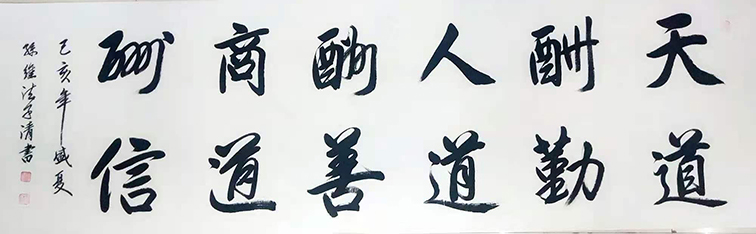 天道
酬勤
人道
酬善
商道
酬信
己亥年盛夏
孫维法子清書